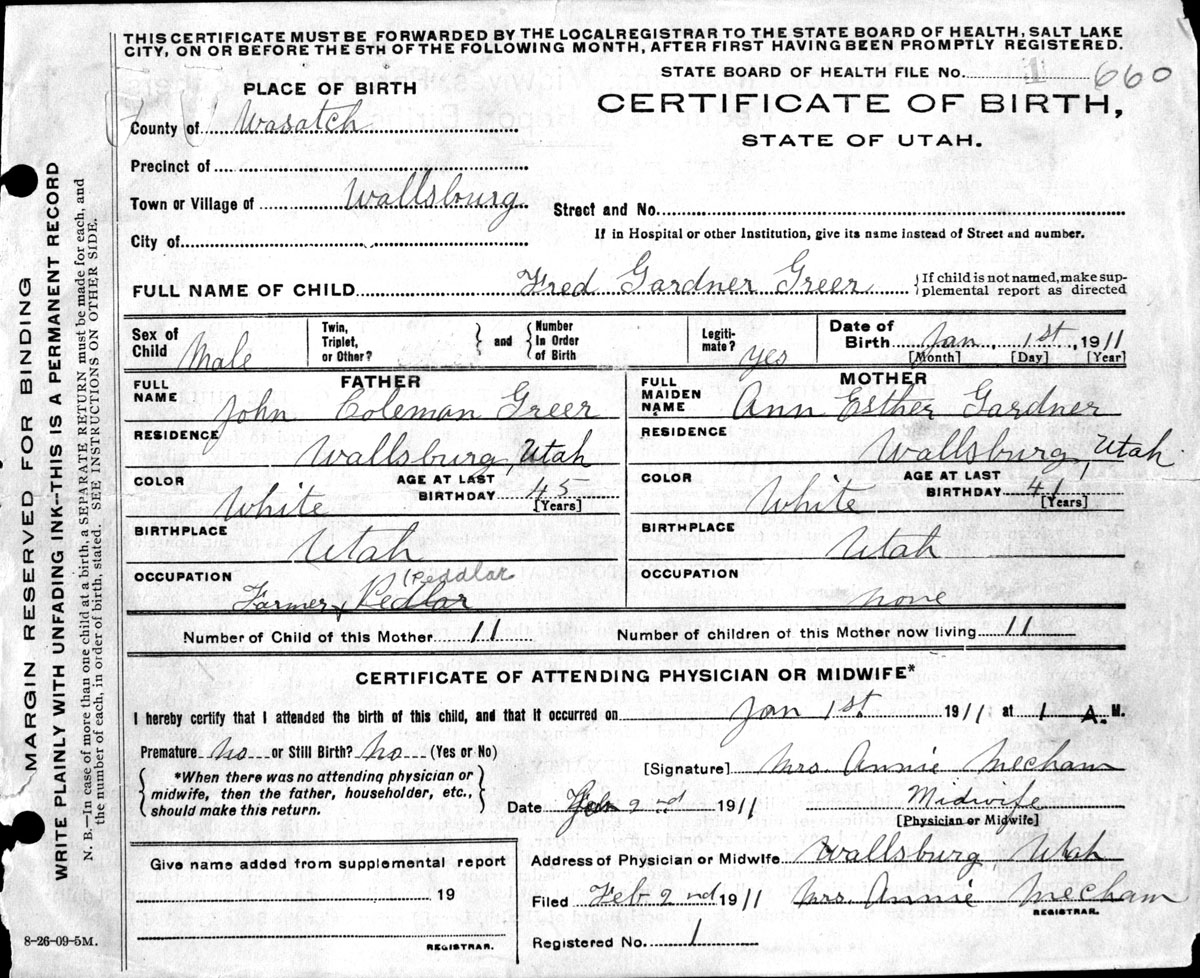 THIS CERTIFICATE MUST BE FORWARDED BY THE LOCALREGISTRAR TO THE STATE BOARD OF HEALTH, SALT LAKE
CITY, ON OR BEFORE THE 5TH OF THE FOLLOWING MONTH, AFTER FIRST HAVING BEEN PROMPTLY REGISTERED.
STATE BOARD OF HEALTH FILE No. 1 660
PLACE OF BIRTH
CERTIFICATE OF BIRTH,
STATE OF UTAH.
County of Wasatch
Precinct of
Town or Village of Wallsburg
Street and No.
City of
If in Hospital or other Institution, give its name instead of Street and number.
FULL NAME OF CHILD Fred Gardner Greer {If child is not named, make sup-
plemental report as directed
Sex of Child Male
Twin, Triplet, or Other? } and { Number In Order of Birth
Legiti-mate? yes
Date of Birth Jan. 1st, 1911
[Month] [Day] [Year]
FATHER
FULL NAME John Coleman Greer
RESIDENCE Wallsburg, Utah
COLOR White AGE AT LAST BIRTHDAY 45 [Years]
BIRTHPLACE Utah
OCCUPATION Farmer & Pedlar (Peddlar
MOTHER
FULL MAIDEN NAME Ann Esther Gardner
RESIDENCE Wallsburg, Utah
COLOR White AGE AT LAST BIRTHDAY 41 [Years]
BIRTHPLACE Utah
OCCUPATION none
Number of Child of this Mother 11 Number of children of this Mother now living 11
CERTIFICATE OF ATTENDING PHYSICIAN OR MIDWIFE*
I hereby certify that I attended the birth of this child, and that it occurred on Jan 1st 1911 at 1 A. M.
Premature no or Still Birth? no (Yes or No)
[Signature] Mrs. Annie Mecham
{ *When there was no attending physician or
midwife, then the father, householder, etc.,
should make this return. }
Date Feb 2nd 1911 Midwife
[Physician or Midwife]
Give name added from supplemental report
19
REGISTRAR.
Address of Physician or Midwife Wallsburg Utah
Filed Feb 2nd 1911 Mrs. Annie Mecham
REGISTRAR.
Registered No. 1
8-26-09-5M.
MARGIN RESERVED FOR BINDING
WRITE PLAINLY WITH UNFADING INK--THIS IS A PERMANENT RECORD
N. B.—In case of more than one child at a birth, a SEPARATE RETURN must be made for each, and
the number of each, in order of birth, stated. SEE INSTRUCTIONS ON OTHER SIDE.